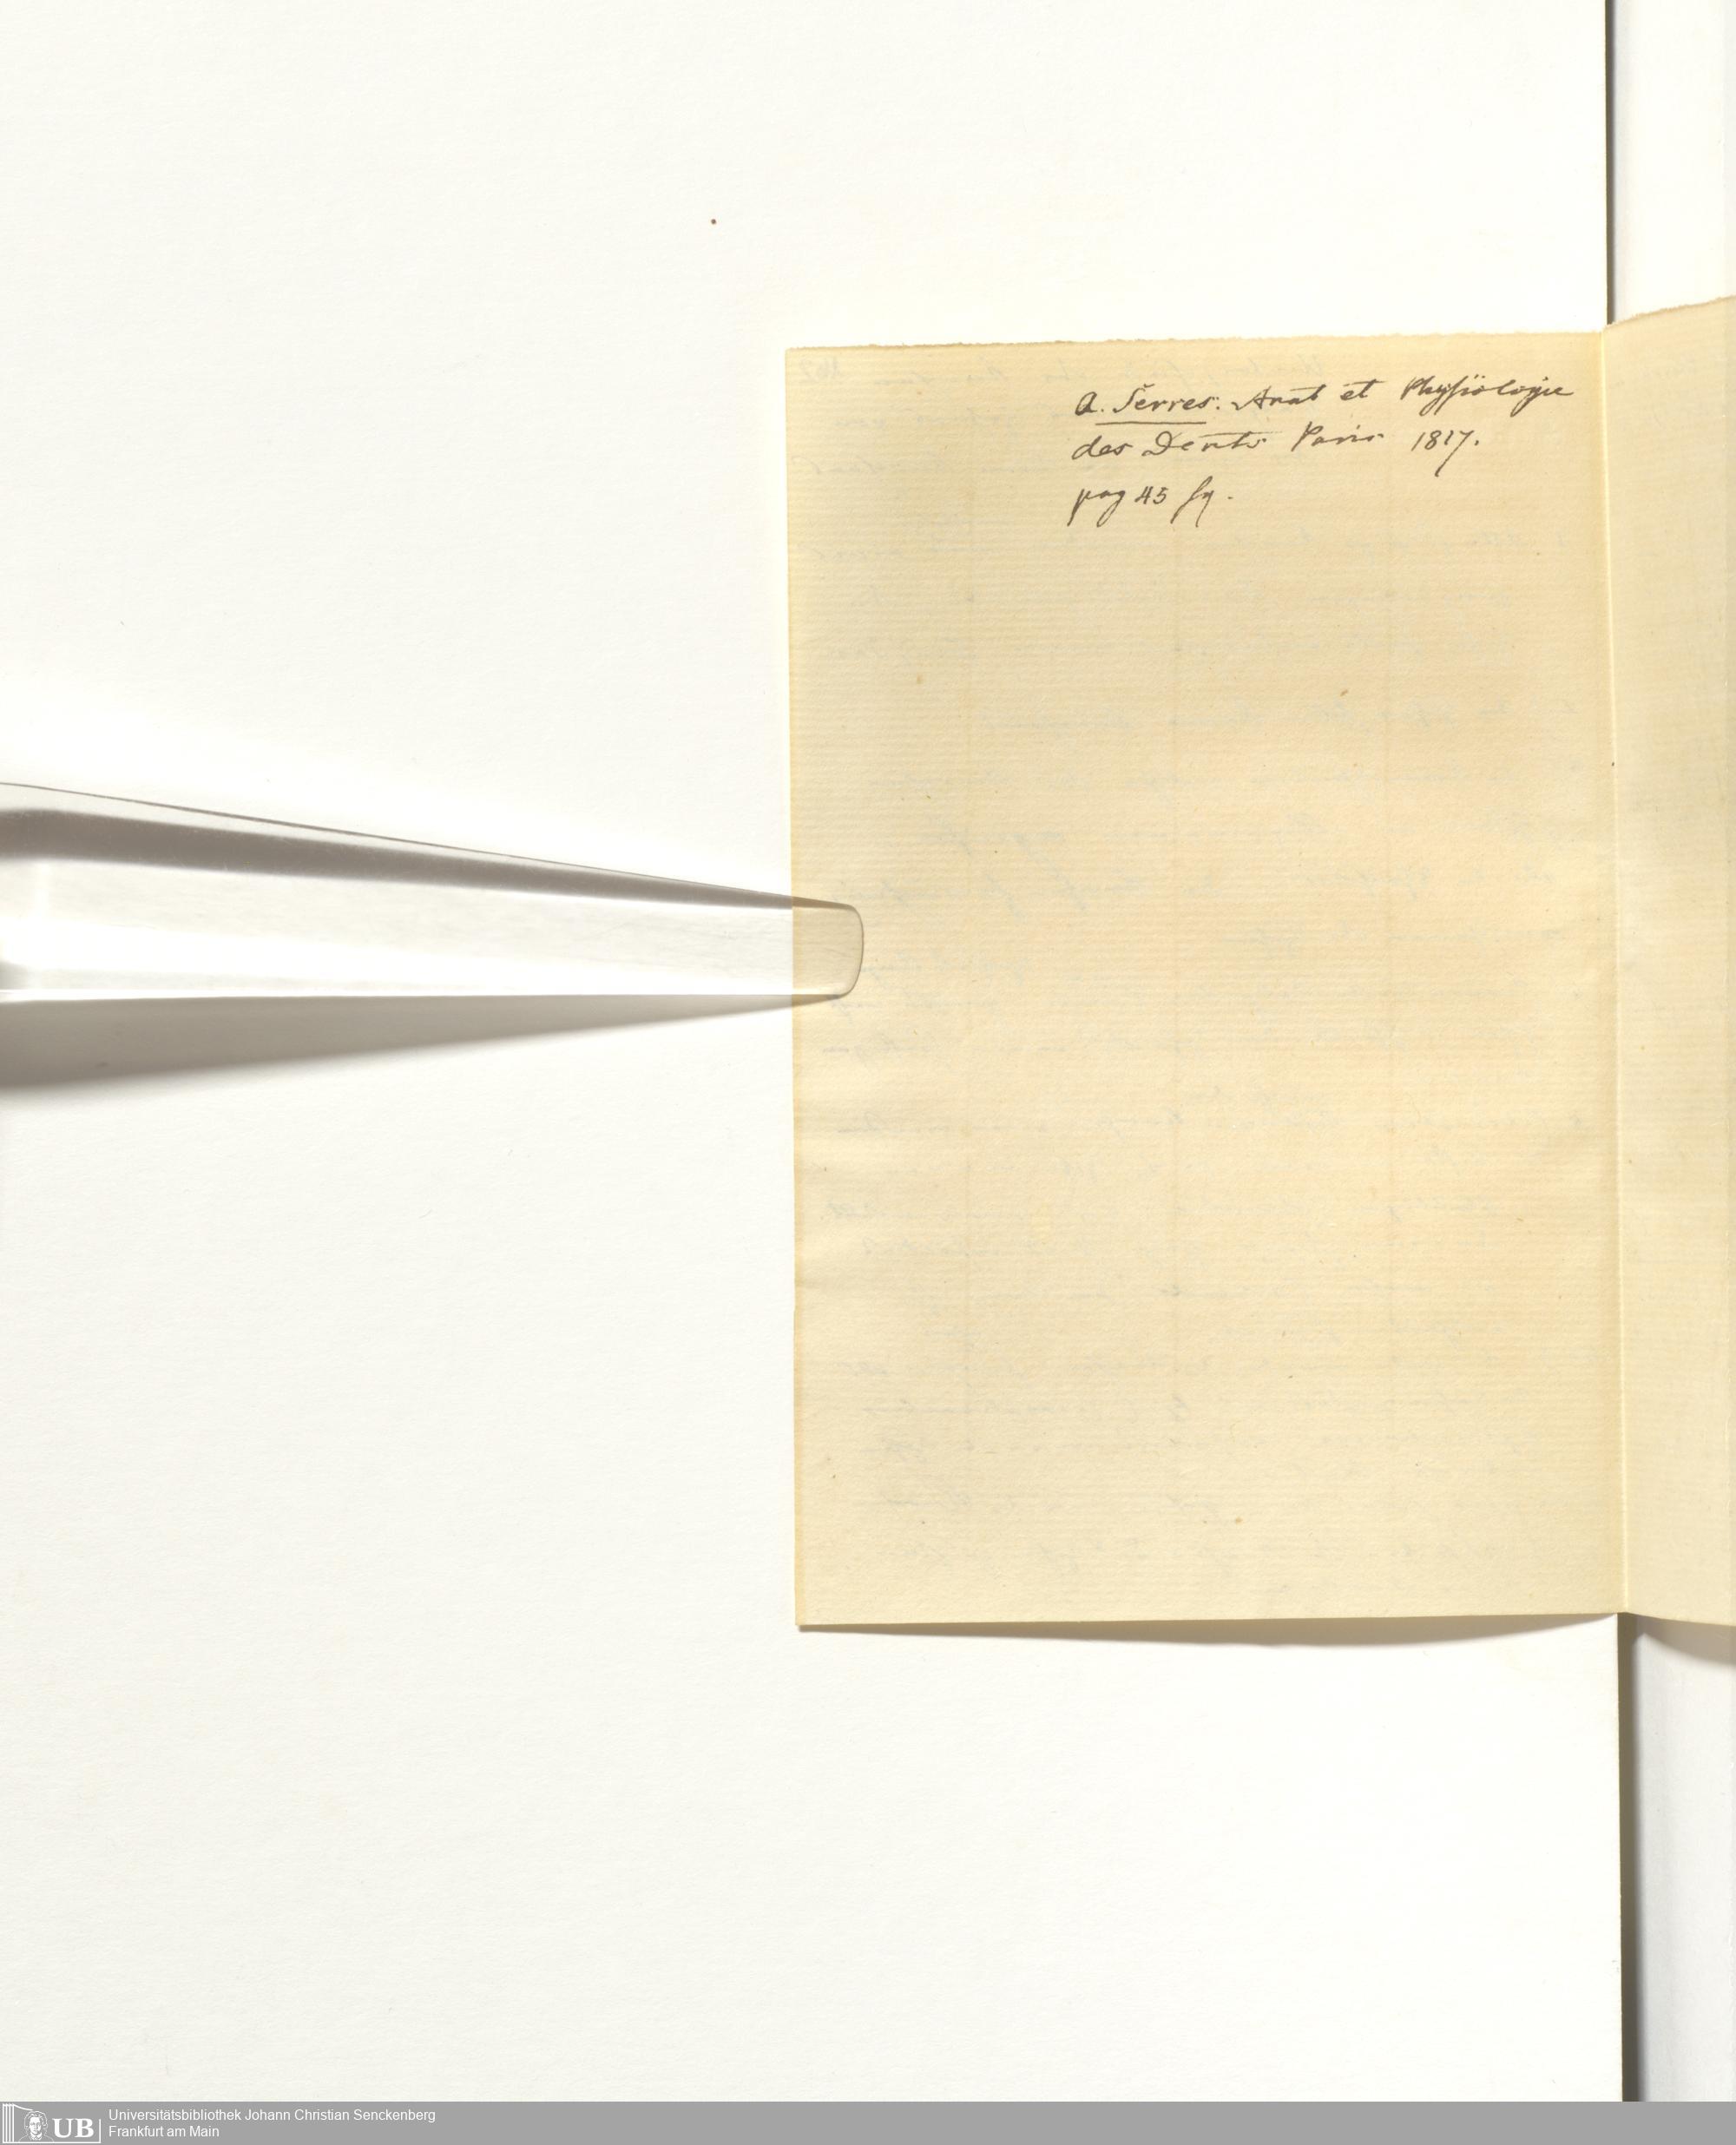 A. Serres. Anat et Physiologie
des Dents Paris 1817.
pag 45 sq.
UB
Universitätsbibliothek Johann Christian Senckenberg
Frankfurt am Main